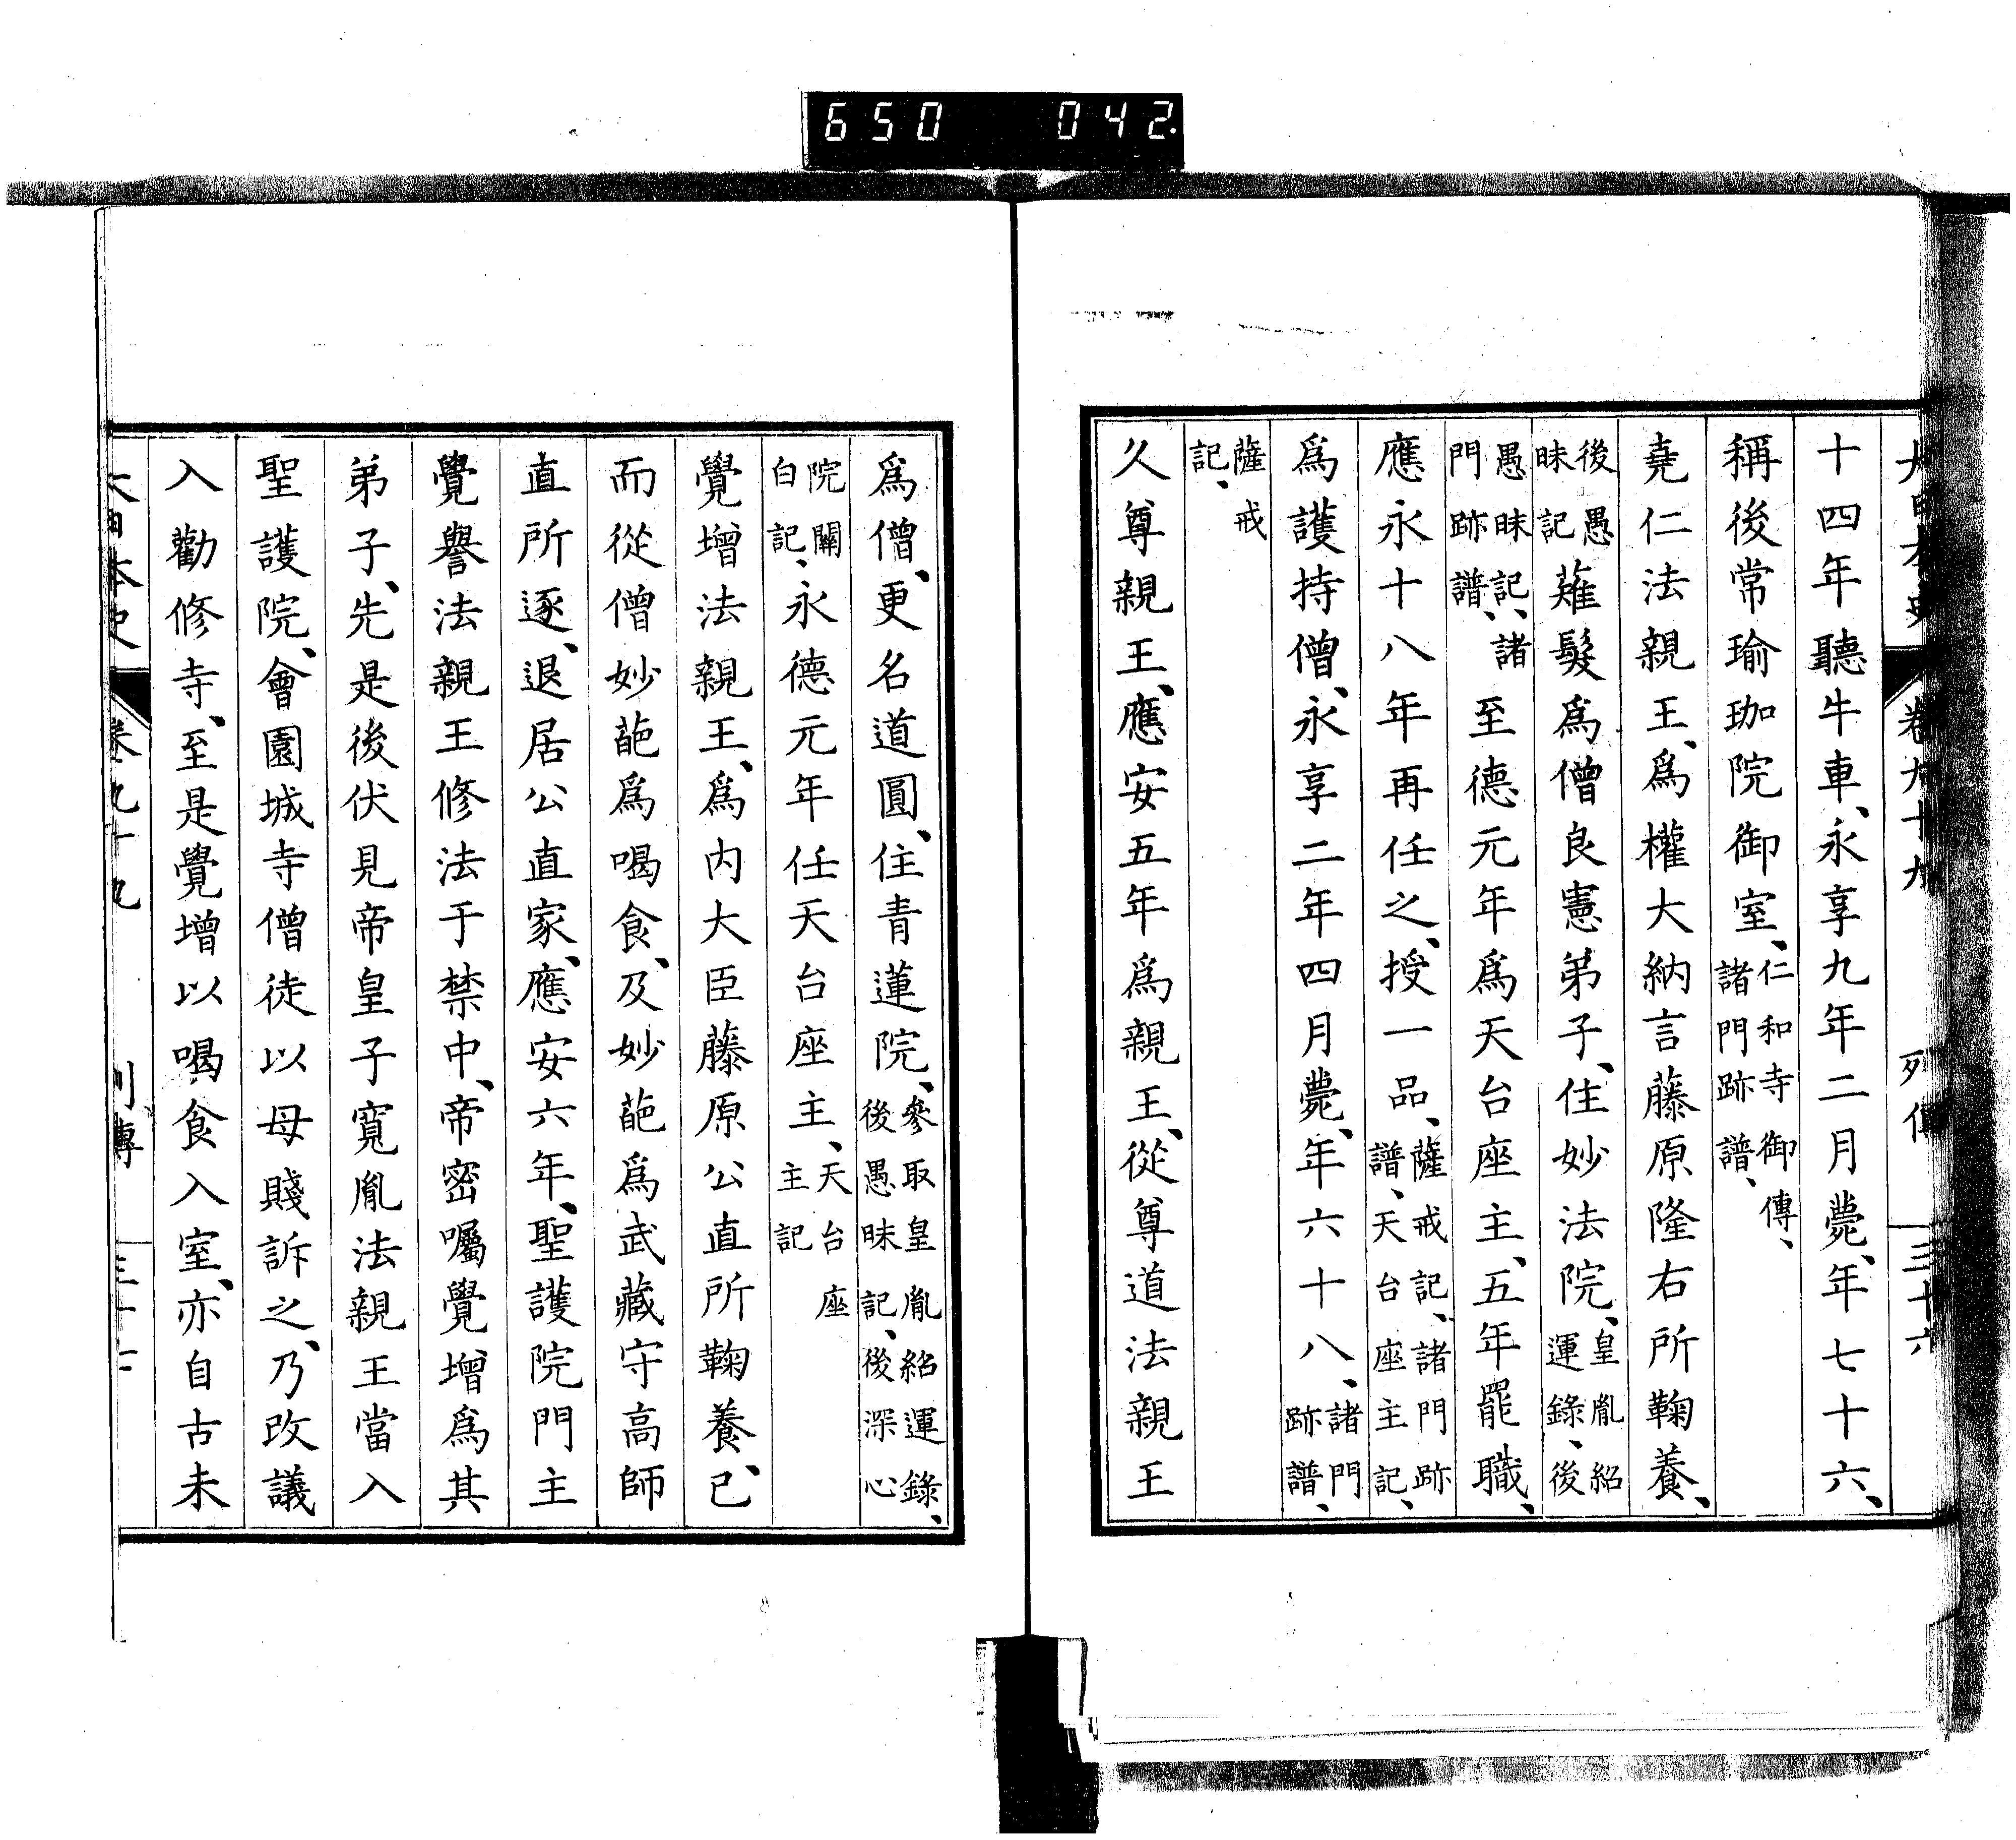 650 042
大日本史 卷九十九 列傳 三十六
十四年聽牛車、永享九年二月薨、年七十六、
稱後常瑜珈院御室、仁和寺御傳、諸門跡譜、
堯仁法親王、爲權大納言藤原隆右所鞠養、
後愚昧記薙髮爲僧良憲弟子、住妙法院、皇胤紹運錄、後
愚昧記、諸門跡譜、至德元年爲天台座主、五年罷職、
應永十八年再任之、授一品、薩戒記、諸門跡譜、天台座主記、
爲護持僧、永享二年四月薨、年六十八、諸門跡譜、
薩戒記、
久尊親王、應安五年爲親王、從尊道法親王
爲僧、更名道圓、住青蓮院、參取皇胤紹運錄、後愚昧記、後深心
院關白記、永德元年任天台座主、天台座主記
覺增法親王、爲内大臣藤原公直所鞠養、已
而從僧妙葩爲喝食、及妙葩爲武藏守高師
直所逐、退居公直家、應安六年、聖護院門主
覺譽法親王修法于禁中、帝密囑覺增爲其
弟子、先是後伏見帝皇子寬胤法親王當入
聖護院、會園城寺僧徒以母賤訴之、乃改議
入勸修寺、至是覺增以喝食入室、亦自古未
大日本史 卷九十九 列傳